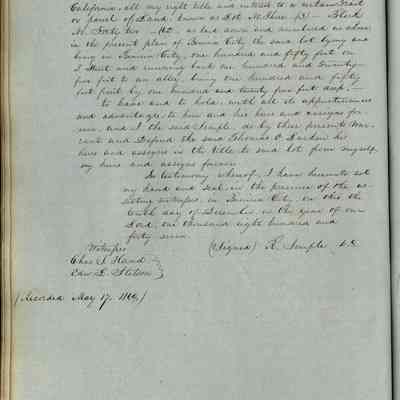 California, all my right title and interest to a certain Tract
or parcel of Land, known as Lot No. Three (3) - Block
No. Forty two - 42 - as laid down and numbered as shown
in the present plan of Benicia City the said lot lying and
being in Benicia City, one hundred and fifty feet on
I Street and running back one hundred and twenty-
five feet to an alley, being one hundred and fifty
feet front by one hundred and twenty five feet deep, -
to have and to hold, with all its appurtenances
and advantages to him and his heirs and assigns for-
ever, and I the said Semple, do by these presents War-
rant and Defend the said Thomas O. Larkin his
heirs and assigns in the title to said lot from myself
my heirs and assigns forever.
In testimony whereof, I have hereunto set
my hand and seal in the presence of the as-
sisting witnesses in Benicia City, on this the
tenth day of December in the year of our
Lord, one thousand eight hundred and
forty seven.
Witnesses (Signed) R. Semple L.S.
Chas. J. Hand
Edw. L. Stetson
(Recorded May 17, 1849)